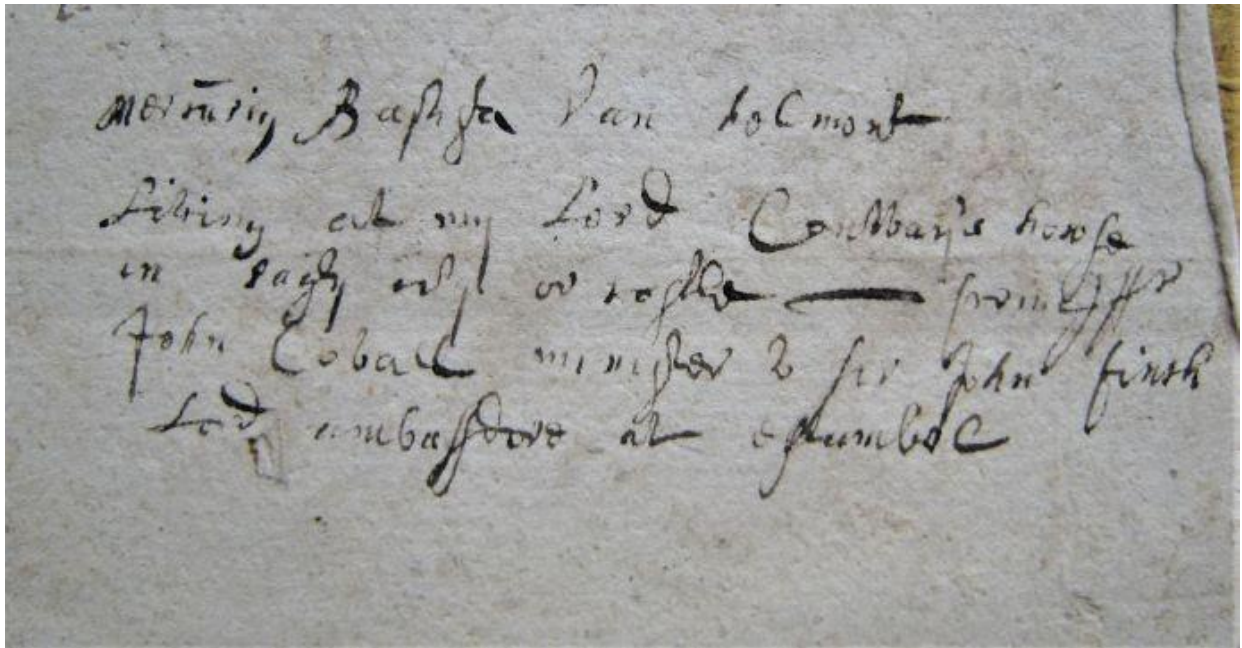 Mercuriy Baptista Van helmont
Living at my Lord Conway's howse
in ragly or castle — from Mr
John Covall minister to sir John finch
Lord ambassdore at estumbol